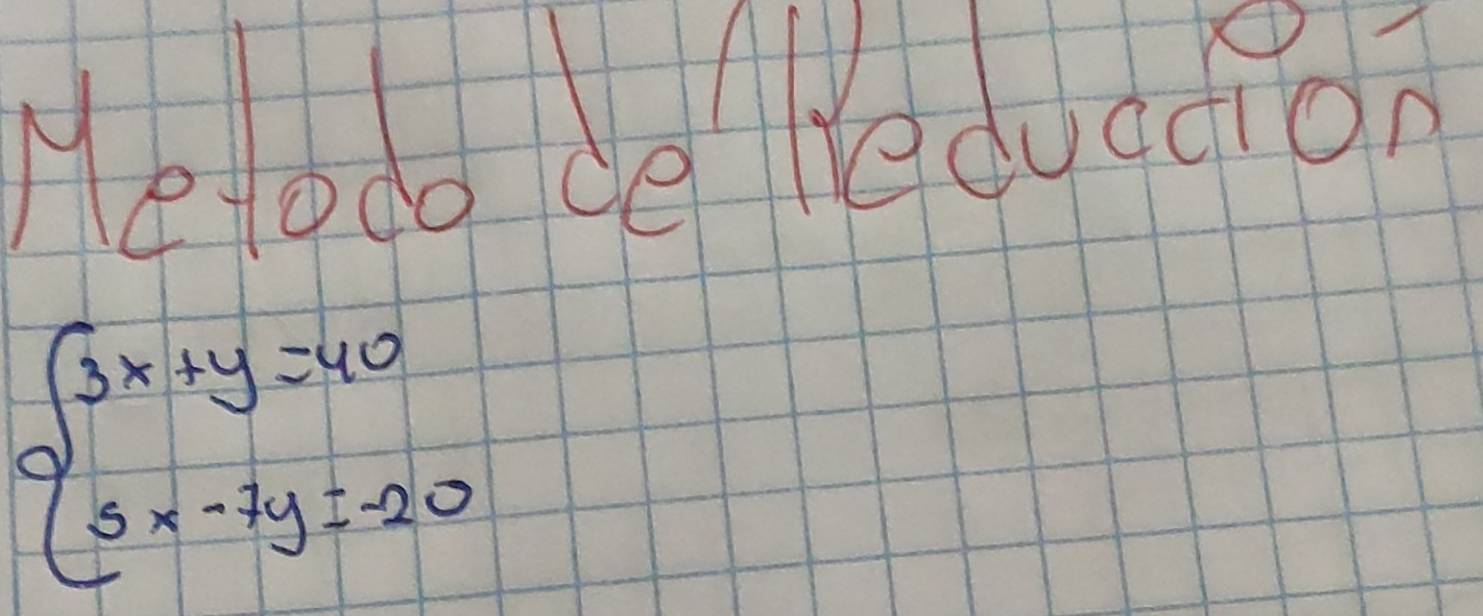 Metodo de Reducción
3x + y = 40
5x - 7y = -20